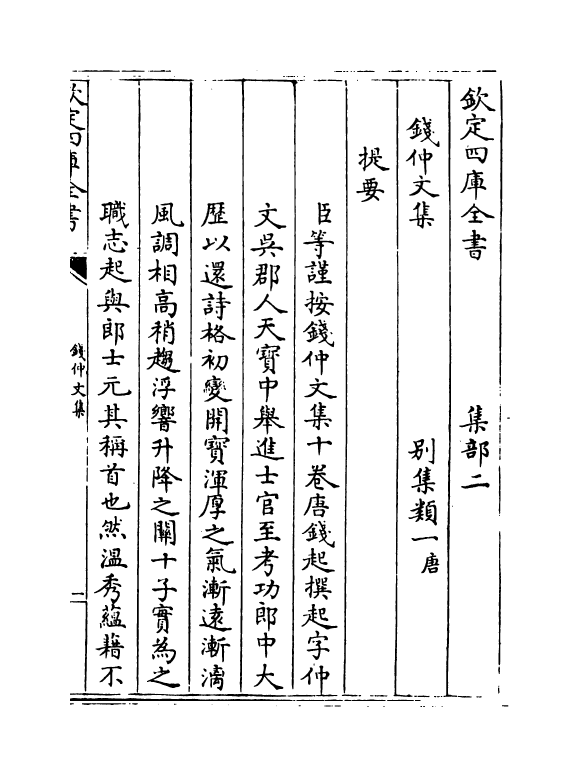 欽定四庫全書　集部二
錢仲文集　別集類一唐
提要
臣等謹按錢仲文集十卷唐錢起撰起字仲
文吳郡人天寶中舉進士官至考功郎中大
歷以還詩格初變開寶渾厚之氣漸遠漸漓
風調相高稍趨浮響升降之關十子實為之
職志起與郎士元其稱首也然溫秀蘊藉不
欽定四庫全書
錢仲文集
二